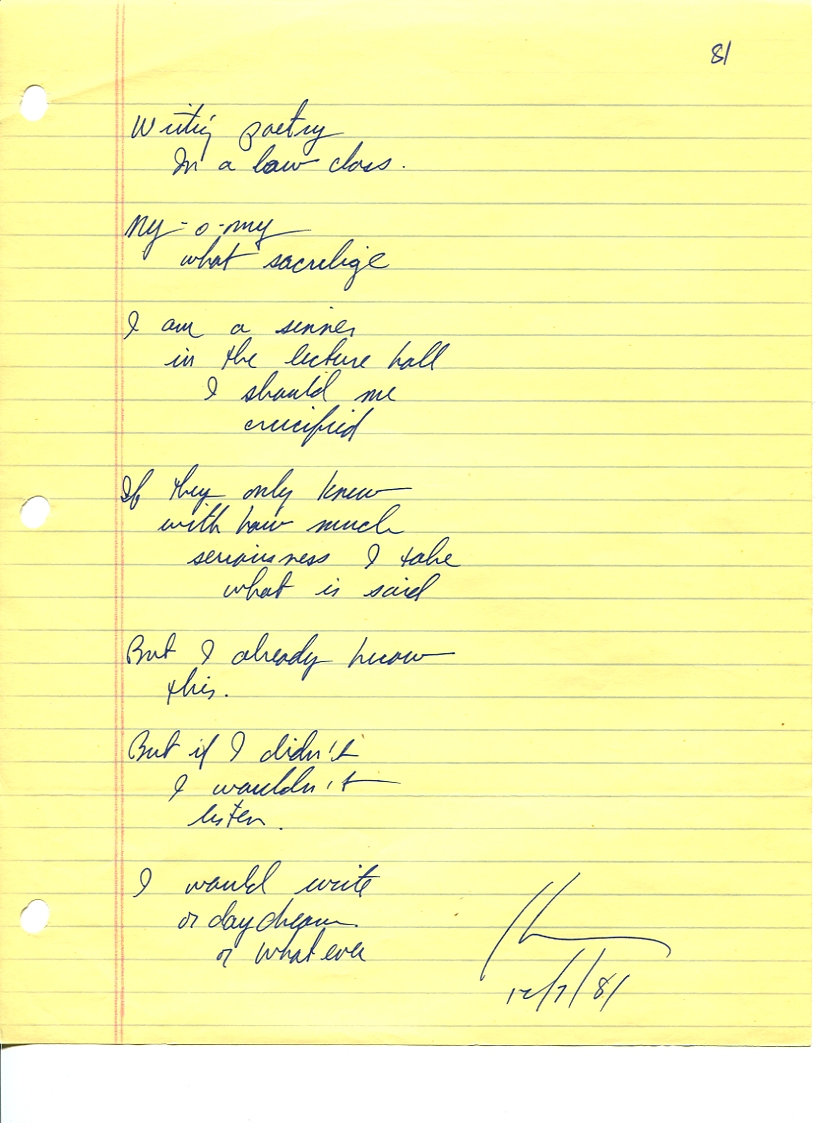 81
Writing poetry
In a law class.
My-o-my
what sacrelige
I am a sinner
in the lecture hall
I should me
crucified
If they only knew
with how much
seriousness I take
what is said
But I already know
this.
But if I didn't
I wouldn't
listen.
I would write
or daydream.
or what ever
12/7/81